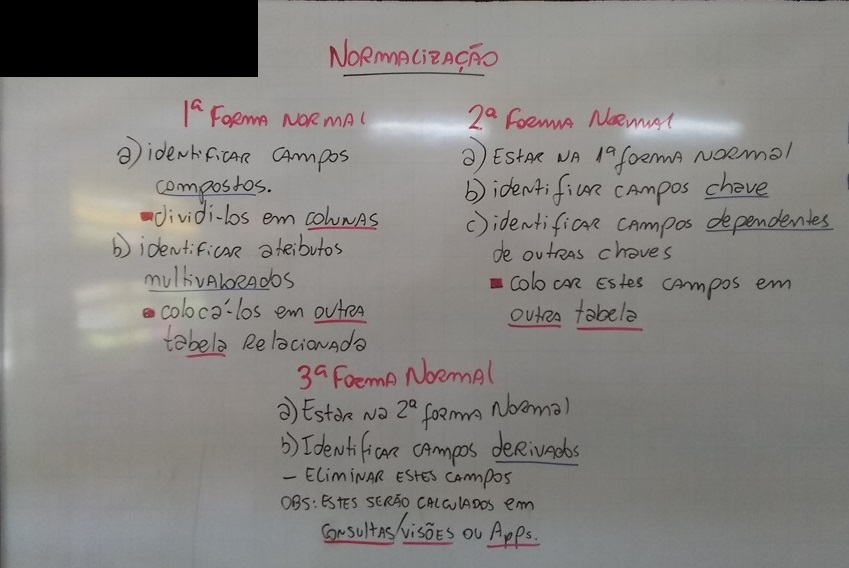 Normalização
1ª Forma Normal
a) identificar campos
compostos.
dividi-los em colunas
b) identificar atributos
multivalorados
colocá-los em outra
tabela relacionada
2ª Forma Normal
a) Estar na 1ª forma normal
b) identificar campos chave
c) identificar campos dependentes
de outras chaves
colocar estes campos em
outra tabela
3ª Forma Normal
a) Estar na 2ª forma Normal
b) Identificar campos derivados
- Eliminar estes campos
OBS: Estes serão calculados em
consultas/visões ou Apps.